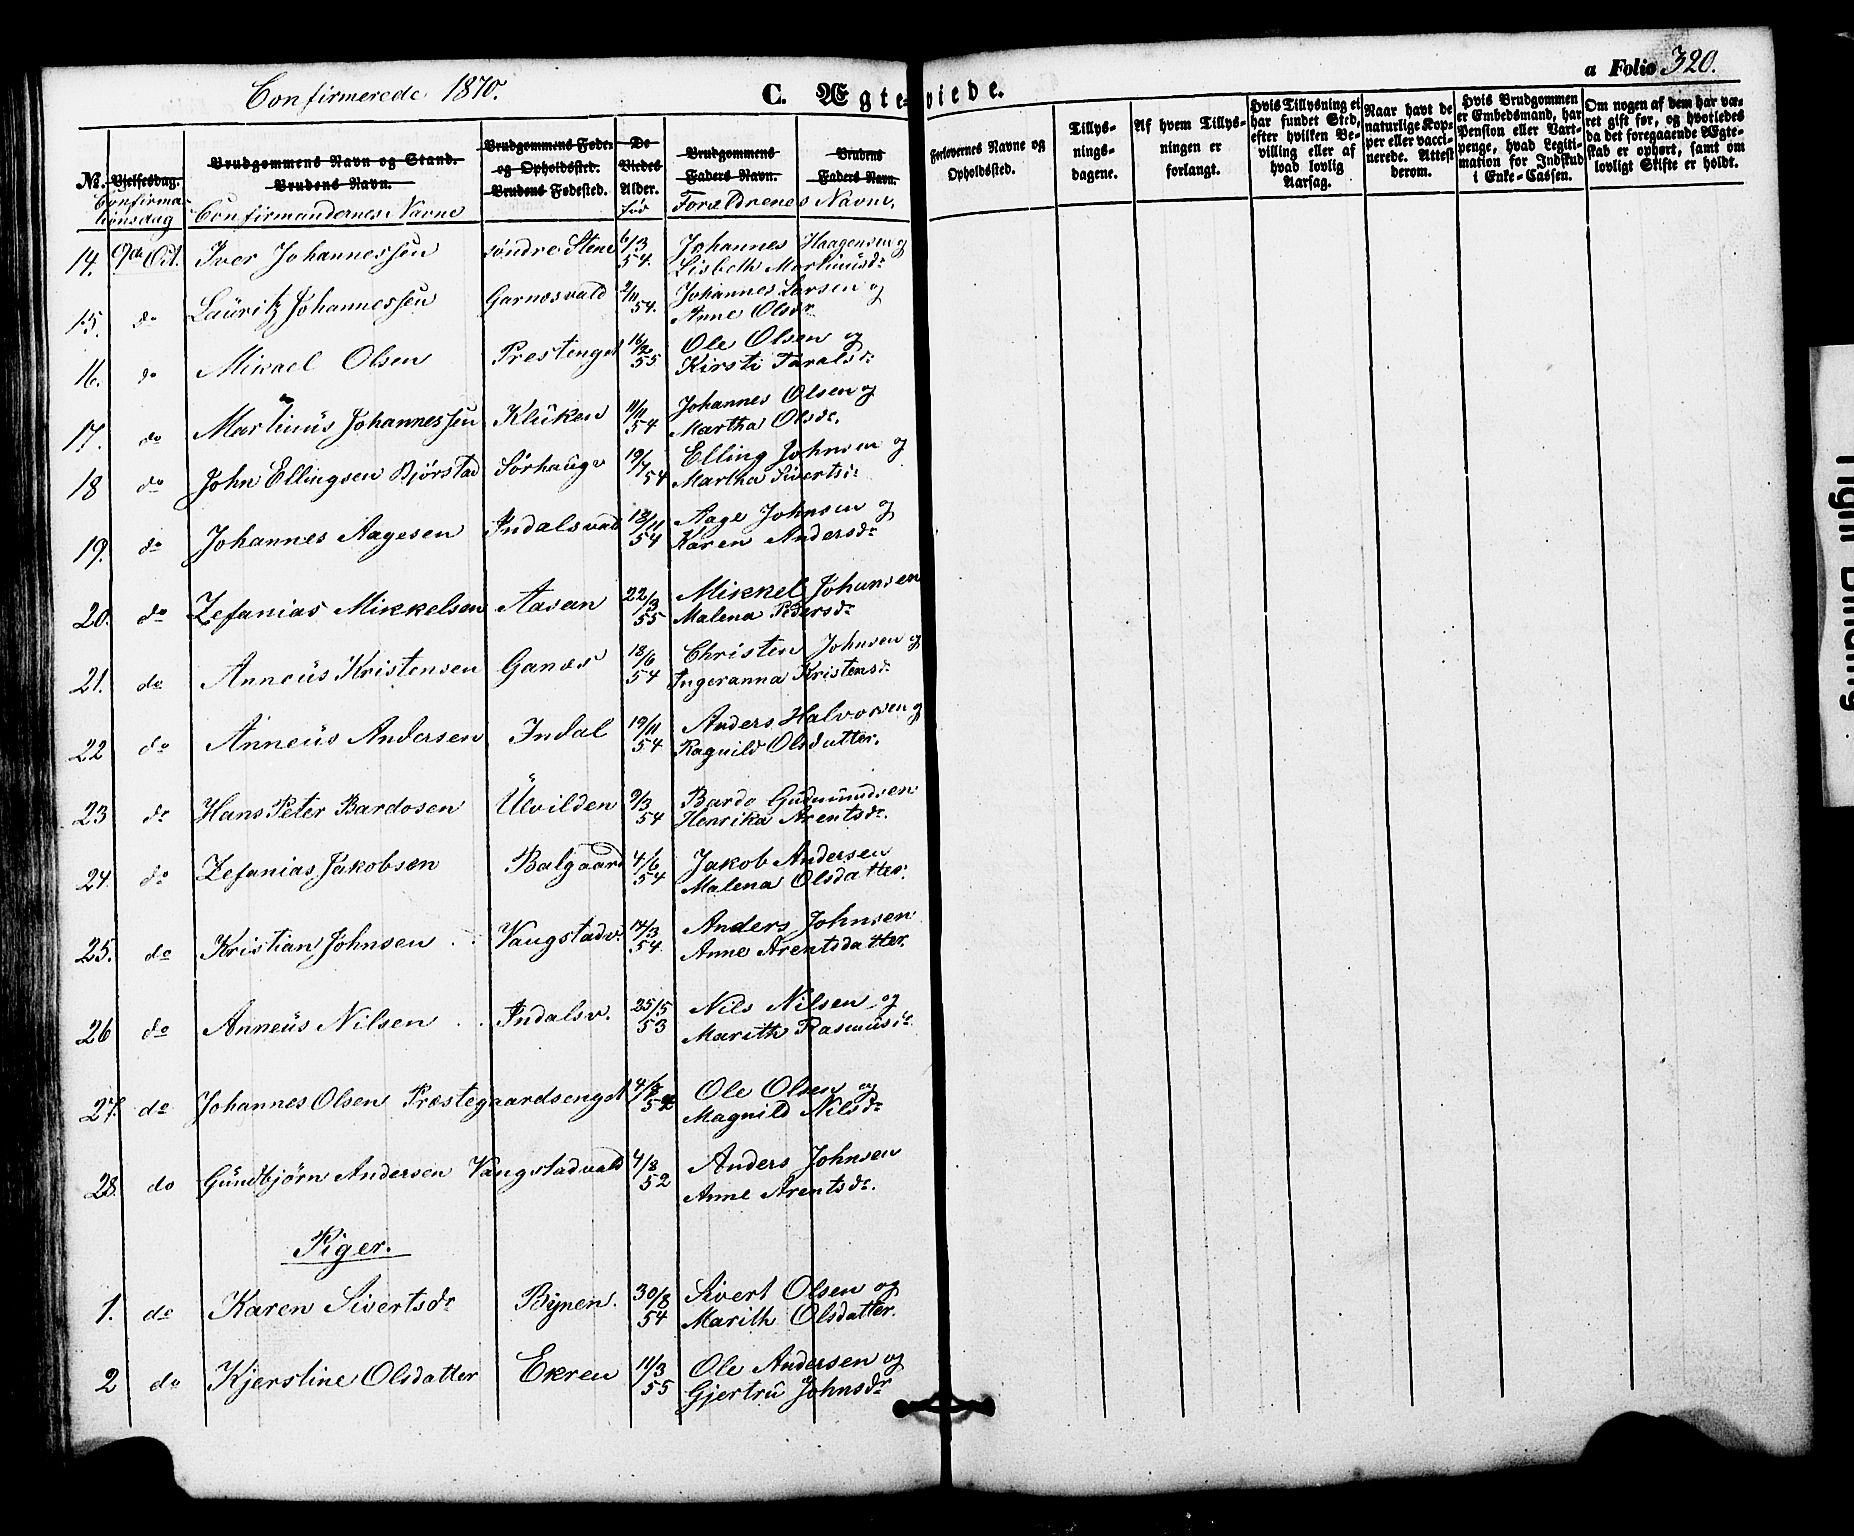 Confirmerede 1870.
C. Ægteviede.
a Folio 320.
No. Vielsesdag. Brudgommens Navn og Stand. Brudens Navn. Brudgommens Føde- og Opholdssted. Brudens Fødested. De Viedes Alder. Brudgommens Faders Navn. Brudens Faders Navn.
Confirmationsdag Confirmandernes Navne fød Forældrenes Navne.
Forlovernes Navne og Opholdssted.
Tillysningsdagene.
Af hvem Tillysningen er forlangt.
Hvis Tillysning ei har fundet Sted, efter hvilken Bevilling eller af hvad lovlig Aarsag.
Naar havt de naturlige Kopper eller vaccinerede. Attest derom.
Hvis Brudgommen er Embedsmand, har Pension eller Vartpenge, hvad Legitimation for Indskud i Enke-Cassen.
Om nogen af dem har været gift før, og hvorledes da det foregaaende Ægteskab er ophørt, samt om lovligt Skifte er holdt.
14. 9de Oct. Iver Johannessen søndre Stene 6/3 54. Johannes Haagensen og
Lisbeth Martinusdr
15. do Lauritz Johannessen Garnesvald 2/11 54. Johannes Larsen og
Anne Olsdr
16. do Mikael Olsen Prestenget 16/2 55 Ole Olsen og
Kirsti Taralsdr
17. do Martinus Johannessen Kluken 11/11 54 Johannes Olsen og
Martha Olsdr.
18 do John Ellingsen Bjørstad Sørhauge 19/7 54 Elling Johnsen og
Martha Sivertsdr
19. do Johannes Aagesen Indalsvald 18/11 54 Aage Johnsen og
Karen Andersdr
20. do Zefanias Mikkelsen Aasen 22/3 55 Mikkel Johansen
Malena Pedersdr
21. do Anneus Kristensen Ganæs 18/6 54 Christen Johnsen og
Ingeranna Kristensdr
22 do Anneus Andersen Indal 19/11 54 Anders Halvorsen og
Ragnild Olsdatter.
23 do Hans Peter Bardosen Ulvilden 9/3 54 Bardo Gudmundsen
Henrika Arentsdr.
24. do Zefanias Jakobsen Balgaard 4/6 54 Jakob Andersen
Malena Olsdatter.
25. do Kristian Johnsen Vangstadv. 14/3 54. Anders Johnsen
Anne Arentsdatter.
26 do Anneus Nilsen Indalsv. 25/5 53 Nils Nilsen og
Marith Rasmusdr
27. do Johannes Olsen Præstegaardsenget Ole Olsen og
Magnild Nilsdr
28. do Gundbjørn Andersen Vangstadvald 4/8 52 Anders Johnsen
Anne Arentsdr.
Piger.
1. do Karen Sivertsdr Bynen. 30/8 54 Sivert Olsen og
Marith Olsdatter.
2 do Kjerstine Olsdatter Ekren 11/3 55 Ole Andersen og
Gjertru Johnsdr